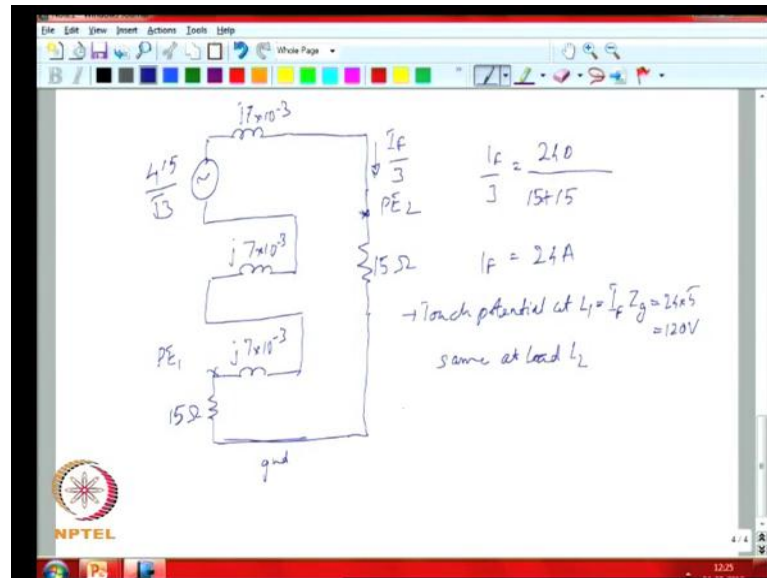 File Edit View Insert Actions Tools Help
Whole Page
j7×10⁻³
415
√3
I_F
3
PE2
15Ω
j7×10⁻³
j7×10⁻³
PE1
15Ω
gnd
I_F/3 = 240/(15+15)
I_F = 24A
→ Touch potential at L1 = I_F Z_g = 24×5
= 120V
same at load L2
NPTEL
4 / 4
12:25